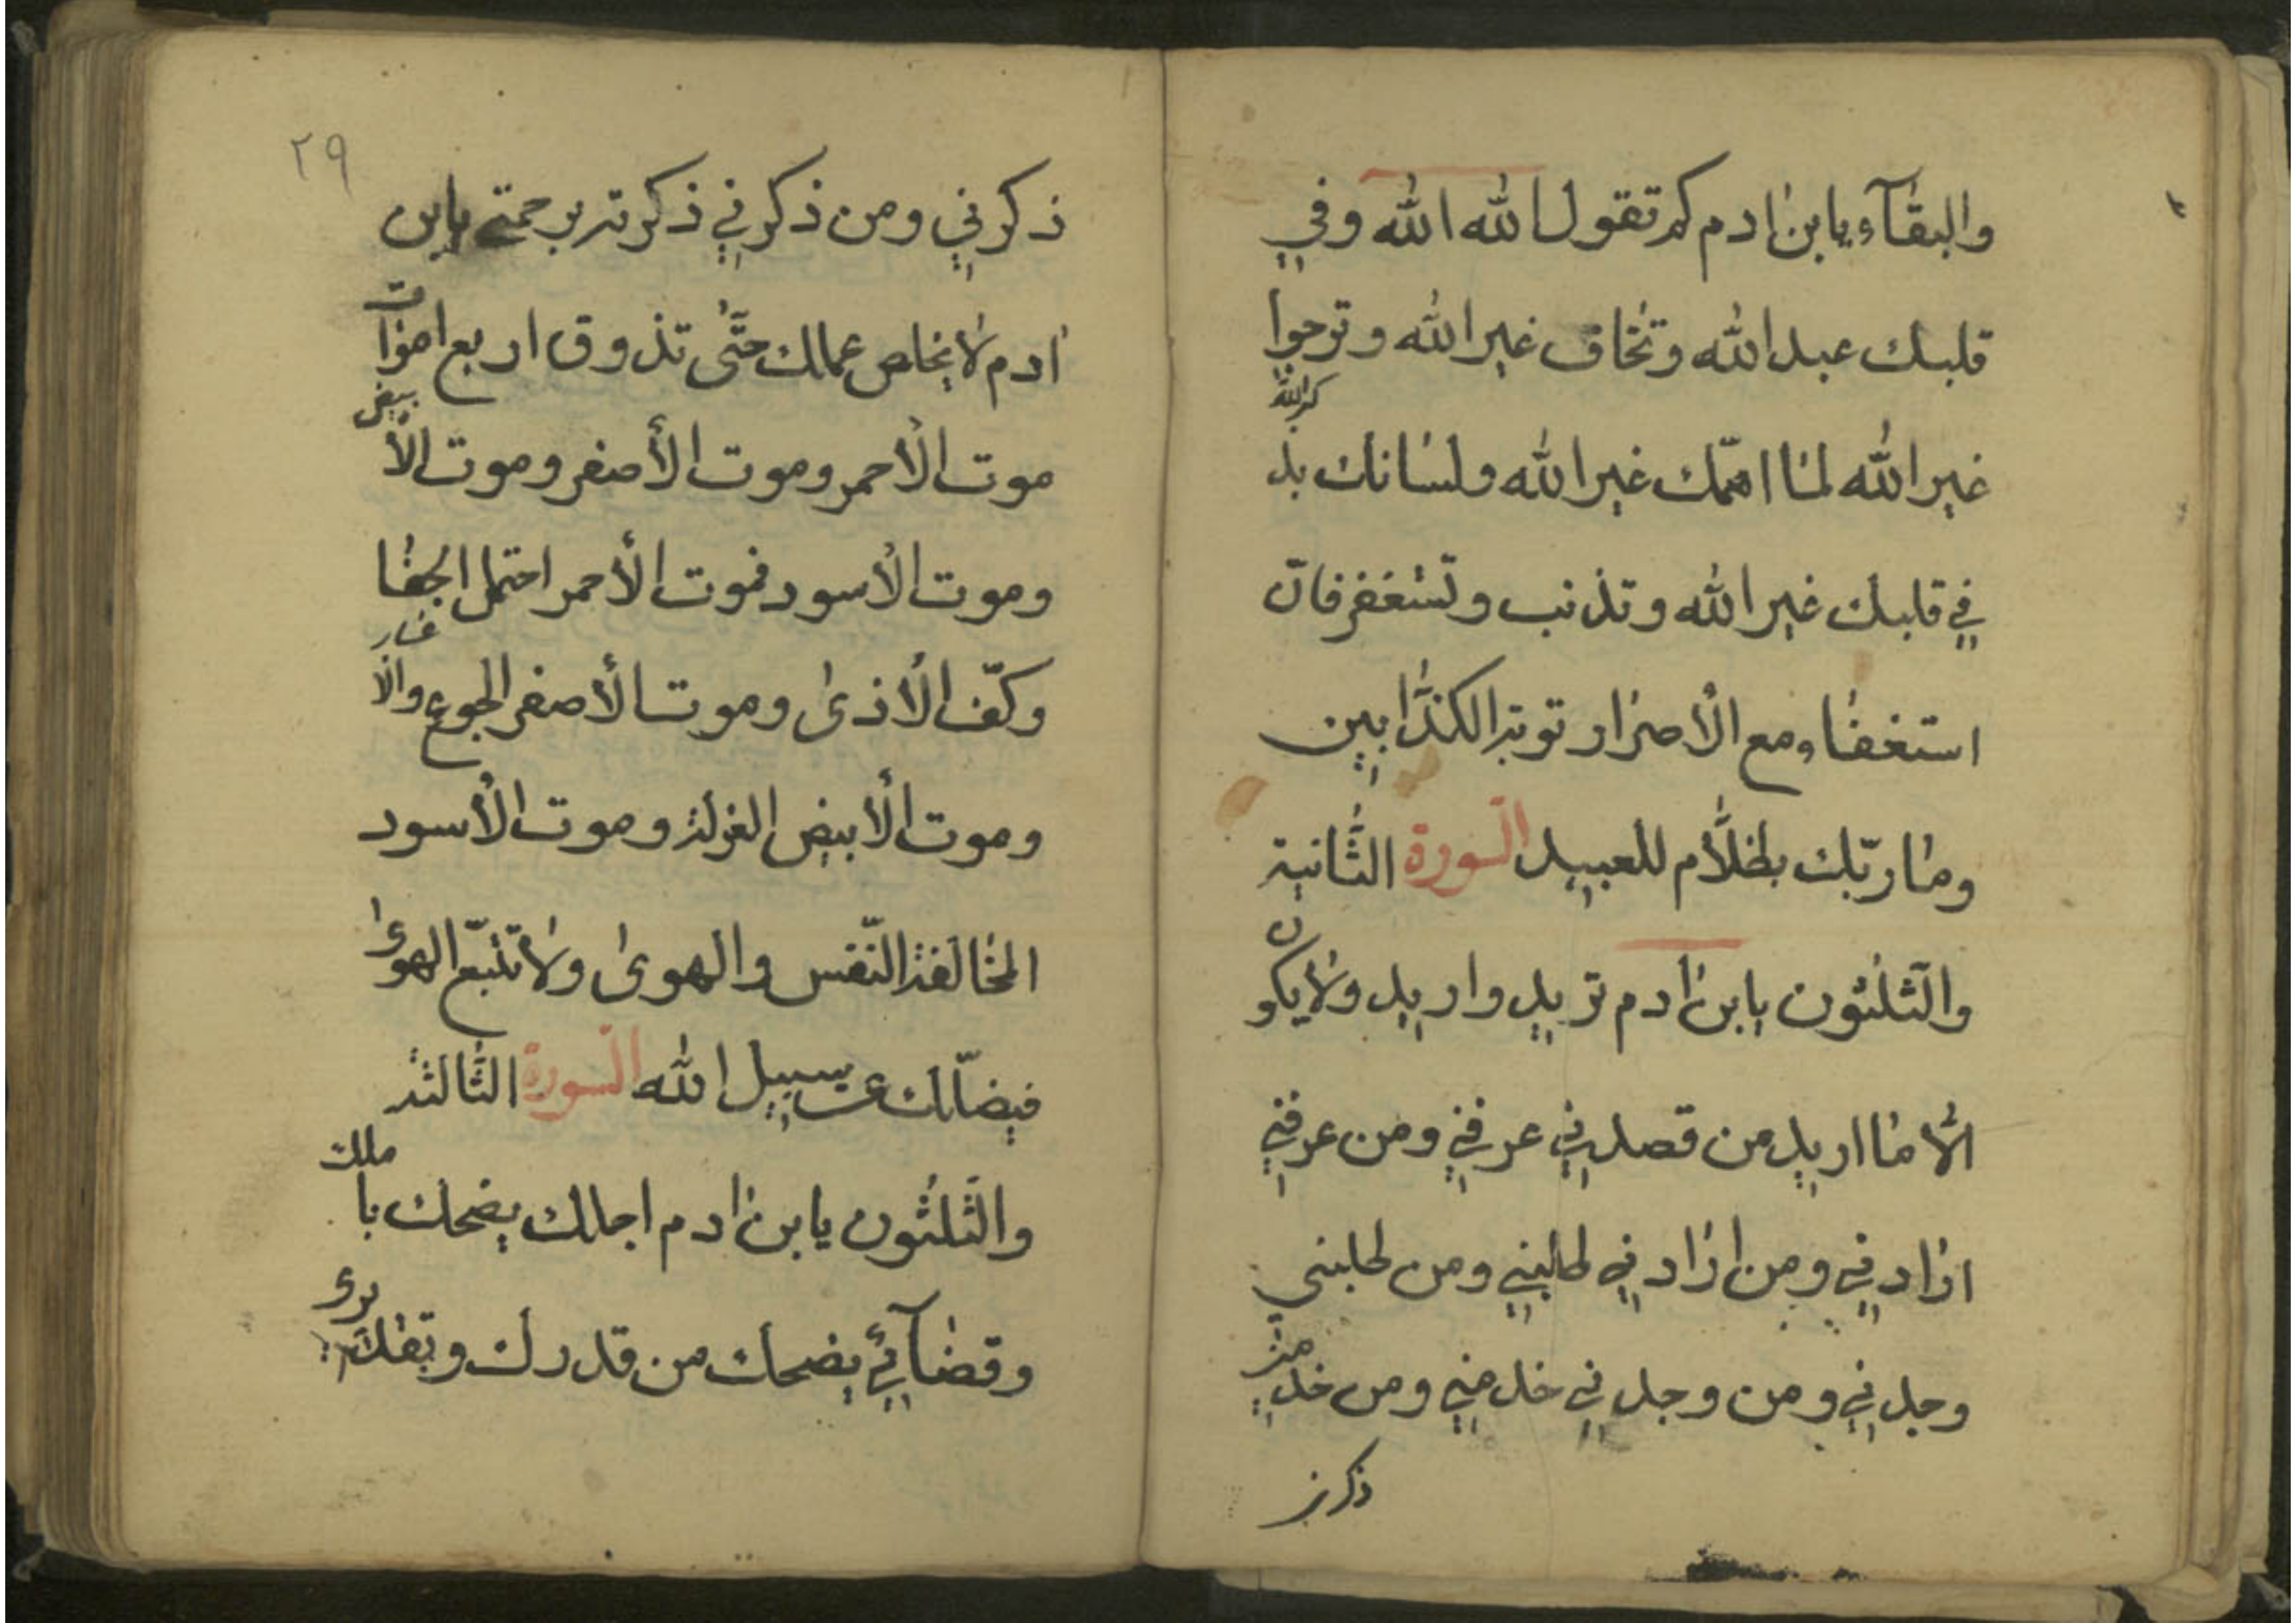 والبقآء يا بن ادم كم تقول الله الله وفي
قلبك عبد الله وتخاف غير الله وترجوا
غير الله لما اهمّك غير الله ولسانك يذ
كر الله
في قلبك غير الله وتذنب وتستغفر فانّ
استغفاء مع الأصرار توبة الكذّابين
وما ربّك بظلّام للعبيد السورة الثّانية
والثّلثون يا بن ادم تريد واريد ولا يكون
الّا ما اريد من قصدني عرفني ومن عرفني
ارادني ومن ارادني طلبني ومن طلبني
وجدني ومن وجدني خدمني ومن خدمني
ذكرني
٢٩
ذكرني ومن ذكرني ذكرته برحمتي يا بن
ادم لا يخلص عملك حتّى تذوق اربع اموآت
موت الأحمر وموت الأصفر وموت الأبيض
وموت الأسود فموت الأحمر احتمل الجفا
وكفّ الأذى وموت الأصفر الجوع والا
وموت الأبيض العزلة وموت الأسود
المخالفة النّفس والهوى ولا تتّبع الهوى
فيضلّك عن سبيل الله السورة الثّالثة
والثّلثون يا بن ادم اجلك يضحك باملك
وقضآئي يضحك من قدرك